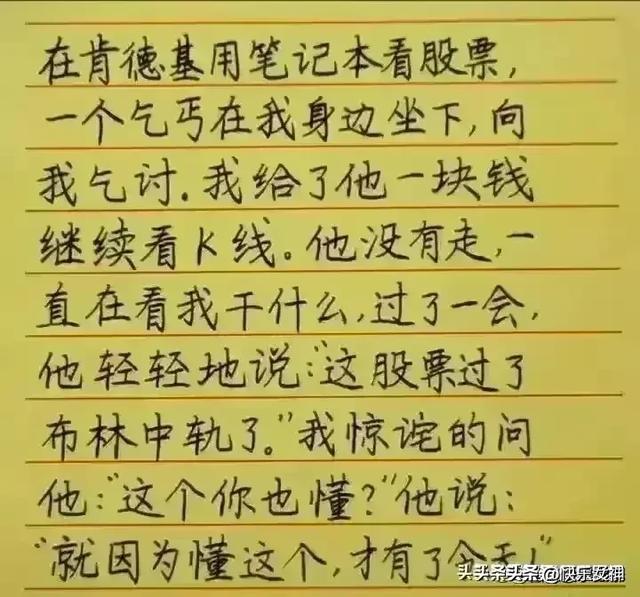 在肯德基用笔记本看股票，
一个乞丐在我身边坐下，向
我乞讨．我给了他一块钱
继续看K线。他没有走，一
直在看我干什么，过了一会，
他轻轻地说：“这股票过了
布林中轨了。”我惊诧的问
他：“这个你也懂？”他说：
“就因为懂这个，才有了今天！”
头条 @快乐女神